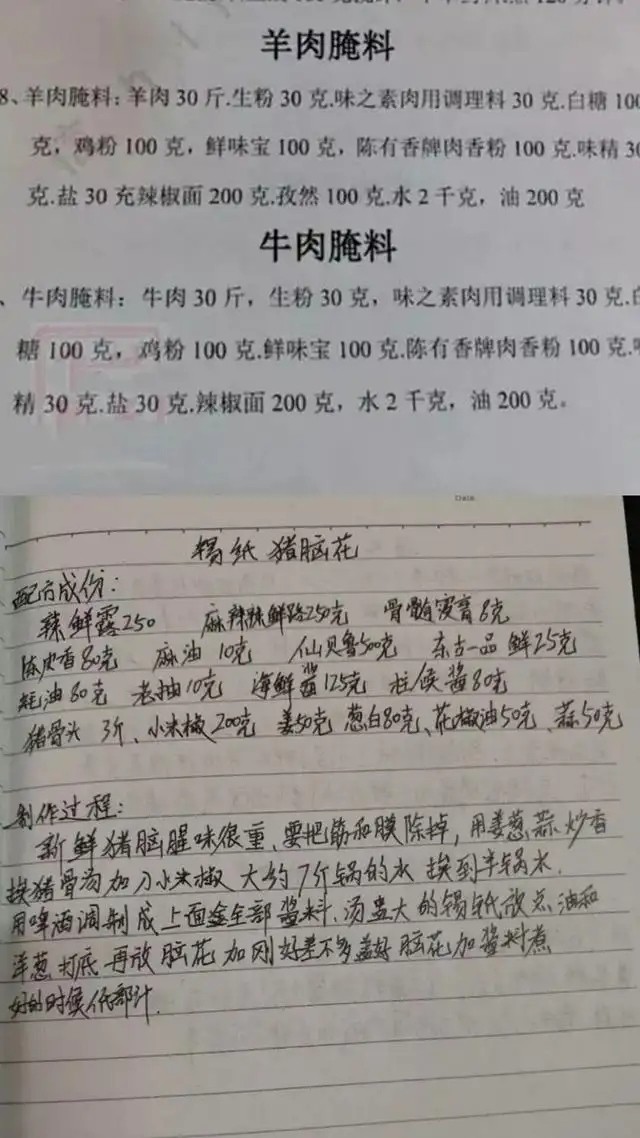 羊肉腌料
8、羊肉腌料：羊肉 30 斤.生粉 30 克.味之素肉用调理料 30 克.白糖 100
克，鸡粉 100 克，鲜味宝 100 克，陈有香牌肉香粉 100 克.味精 30
克.盐 30 充辣椒面 200 克.孜然 100 克.水 2 千克，油 200 克
牛肉腌料
、牛肉腌料：牛肉 30 斤，生粉 30 克，味之素肉用调理料 30 克.白
糖 100 克，鸡粉 100 克.鲜味宝 100 克.陈有香牌肉香粉 100 克.味
精 30 克.盐 30 克.辣椒面 200 克，水 2 千克，油 200 克。
Date.
锡纸 猪脑花
配方成份：
辣鲜露250 麻辣鲜路250克 骨髓浸膏8克
陈皮香80克 麻油 10克 仙贝鲁500克 东古一品鲜25克
蚝油80克 老抽10克 海鲜酱125克 柱侯酱80克
猪骨头 3斤、小米椒200克 姜50克 葱白80克、花椒油50克、蒜50克
制作过程：
新鲜猪脑腥味很重、要把筋和膜除掉，用姜葱蒜炒香
挨猪骨汤加刀小米椒 大约7斤锅的水 挨到半锅水.
用啤酒调制成上面全部酱料、汤盅大的锡纸放点油和
洋葱打底 再放脑花 加刚好差不多盖好脑花加酱料煮
好的时候